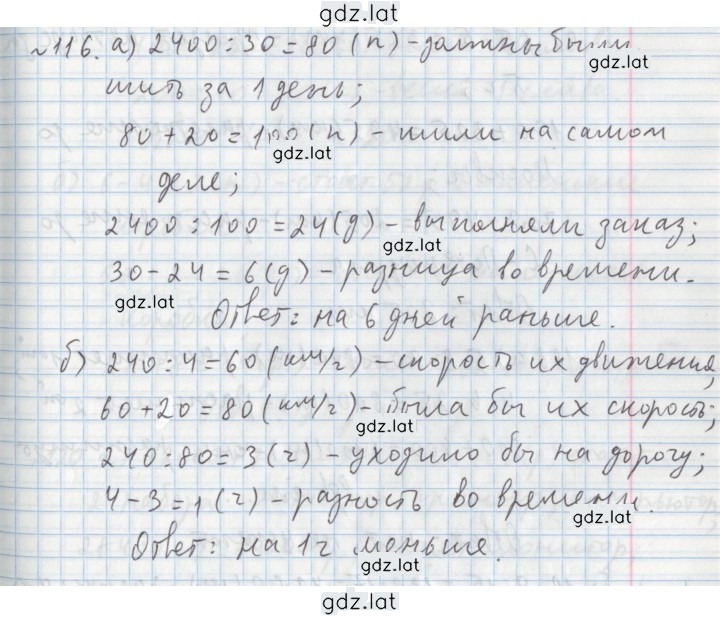 gdz.lat
№116. а) 2400:30=80(п)-должны были
gdz.lat
шить за 1 день;
80+20=100(п)-шили на самом
gdz.lat
деле;
2400:100=24(д)-выполняли заказ;
gdz.lat
30-24=6(д)-разница во времени.
gdz.lat
Ответ: на 6 дней раньше.
б) 240:4=60(км/ч)-скорость их движения;
gdz.lat
60+20=80(км/ч)-была бы их скорость;
gdz.lat
240:80=3(ч)-уходило бы на дорогу;
4-3=1(ч)-разность во времени.
gdz.lat
Ответ: на 1ч меньше.
gdz.lat